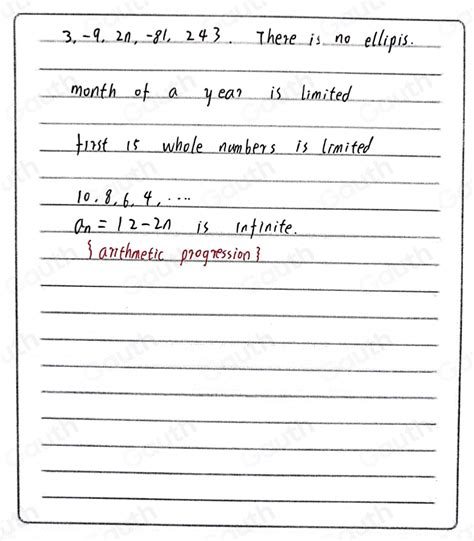 3, -9, 2n, -81, 243. There is no ellipis.
month of a year is limited
first 15 whole numbers is limited
10, 8, 6, 4, ....
an = 12-2n is infinite.
{arithmetic progression}